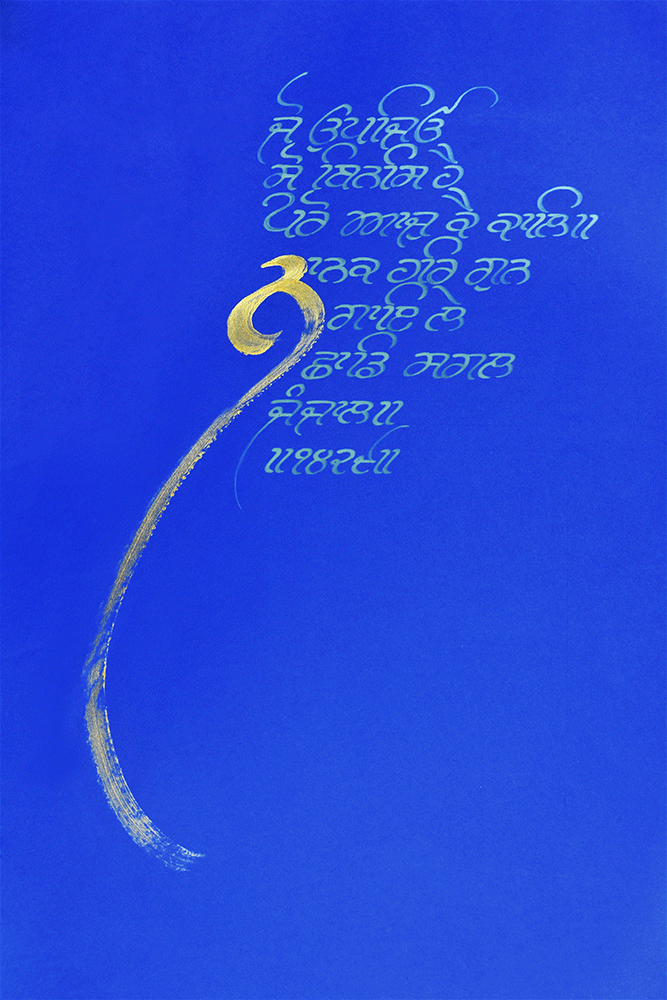 ਜੋ ਉਪਜਿਓ
ਸੋ ਬਿਨਸਿ ਹੈ
ਪਰੋ ਆਜੁ ਕੈ ਕਾਲਿ॥
ਨਾਨਕ ਹਰਿ ਗੁਨ
ਗਾਇ ਲੇ
ਛਾਡਿ ਸਗਲ
ਜੰਜਾਲ॥
॥੧੪੨੯॥